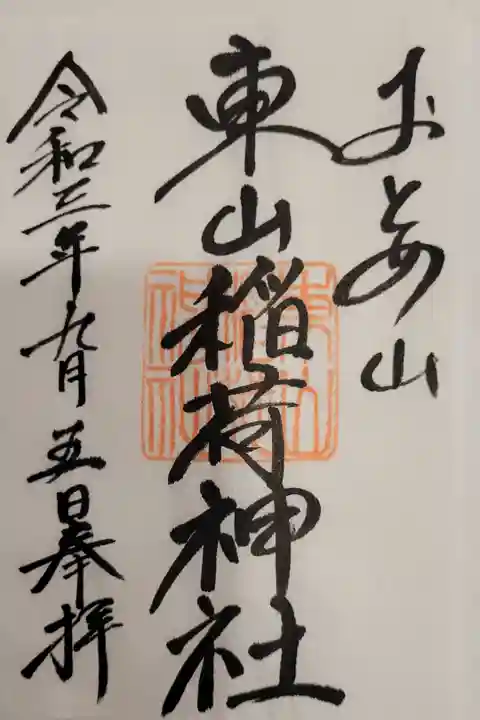 おとめ山
東山稲荷神社
令和三年九月五日奉拝